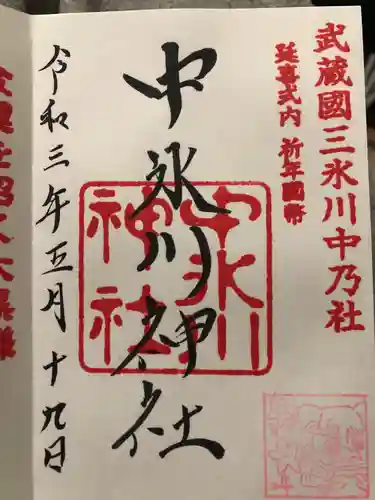 武蔵國三氷川中乃社
延喜式内 祈年國幣
中氷川神社
中氷川
神社
令和三年五月十九日